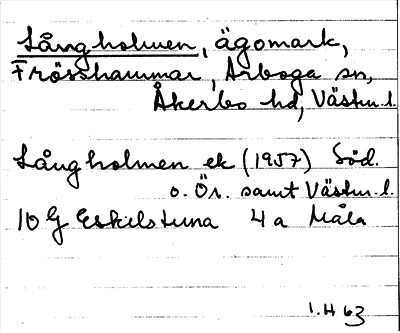 Långholmen, ägomark,
Frösshammar, Arboga sn,
Åkerbo hd, Västm. l.
Långholmen ek (1957) Söd.
o. Ör. samt Västm. l.
10 G Eskilstuna 4 a Måla
1.H 63